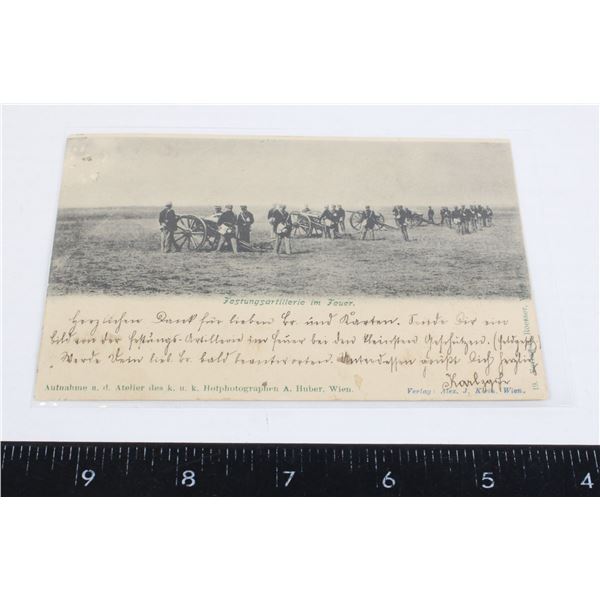 Festungsartillerie im Feuer.
Herzlichen Dank für lieben Br. und Karten. Sende Dir ein
Bild von der Festungs-Artillerie im Feuer bei den kleinsten Geschützen.
Werde Dein lieb. Br. bald beantworten. Unterdessen grüßt Dich herzlich
Aufnahme a. d. Atelier des k. u. k. Hofphotographen A. Huber, Wien.
Verlag: Alex. J. Klein, Wien.
19.
9 8 7 6 5 4